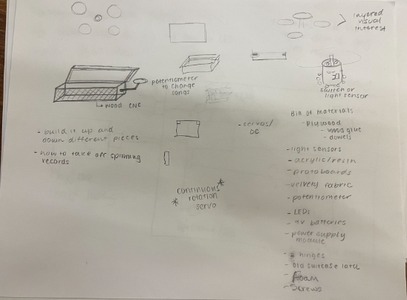 layered
visual
interest
potentiometer
to change
songs
wood CNC
switch or
light sensor
Bill of materials
- Plywood
- wood glue
- dowels
- build it up and
down different pieces
- how to take off spinning
records
- servos/
DC
- light sensors
- acrylic/resin
- protoboards
- velvety fabric
- potentiometer
- LEDs
- batteries
- power supply
module
- hinges
- suitcase latch
- Foam
- screws
continuous
* rotation *
servo